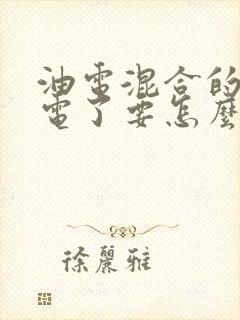 油電混合的
電了要怎麼
徐麗雅